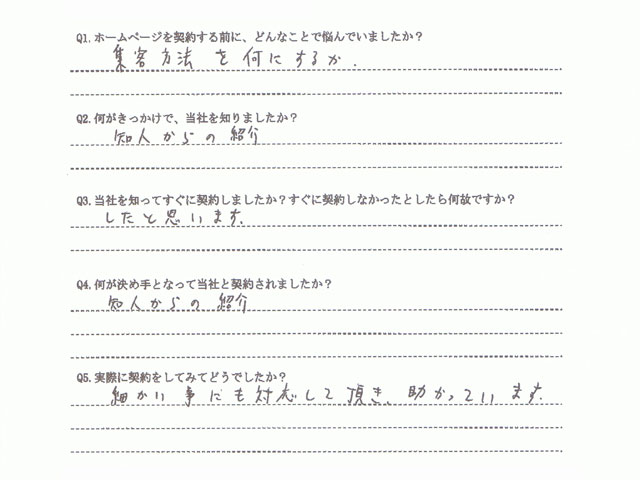 Q1. ホームページを契約する前に、どんなことで悩んでいましたか？
集客方法を何にするか.
Q2. 何がきっかけで、当社を知りましたか？
知人からの紹介
Q3. 当社を知ってすぐに契約しましたか？すぐに契約しなかったとしたら何故ですか？
したと思います.
Q4. 何が決め手となって当社と契約されましたか？
知人からの紹介
Q5. 実際に契約をしてみてどうでしたか？
細かい事にも対応して頂き、助かっています.